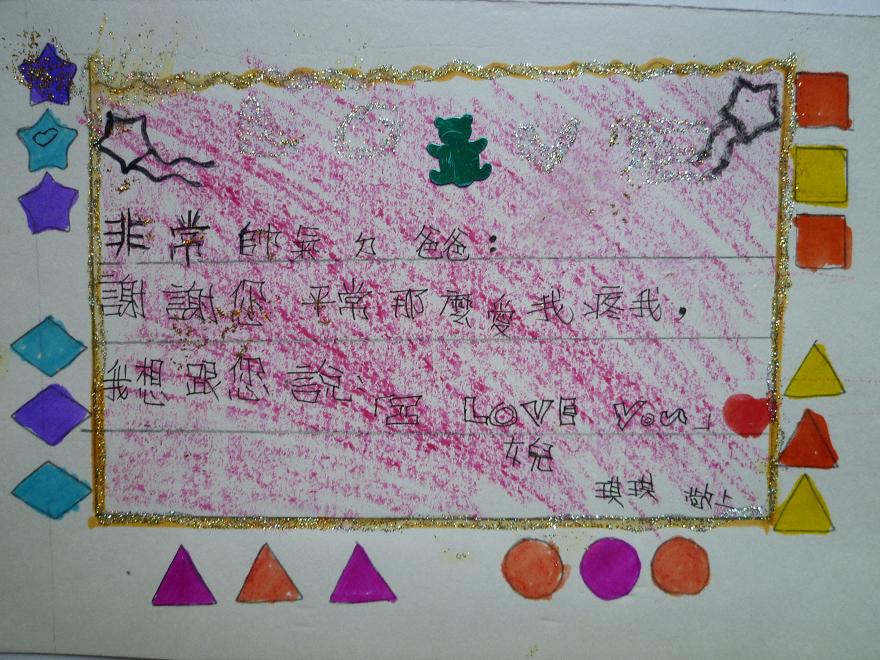 非常帥氣ㄉ爸爸：
謝謝您平常那麼愛我疼我，
我想跟您說：「I LOVE You」
女兒
琪琪 敬上